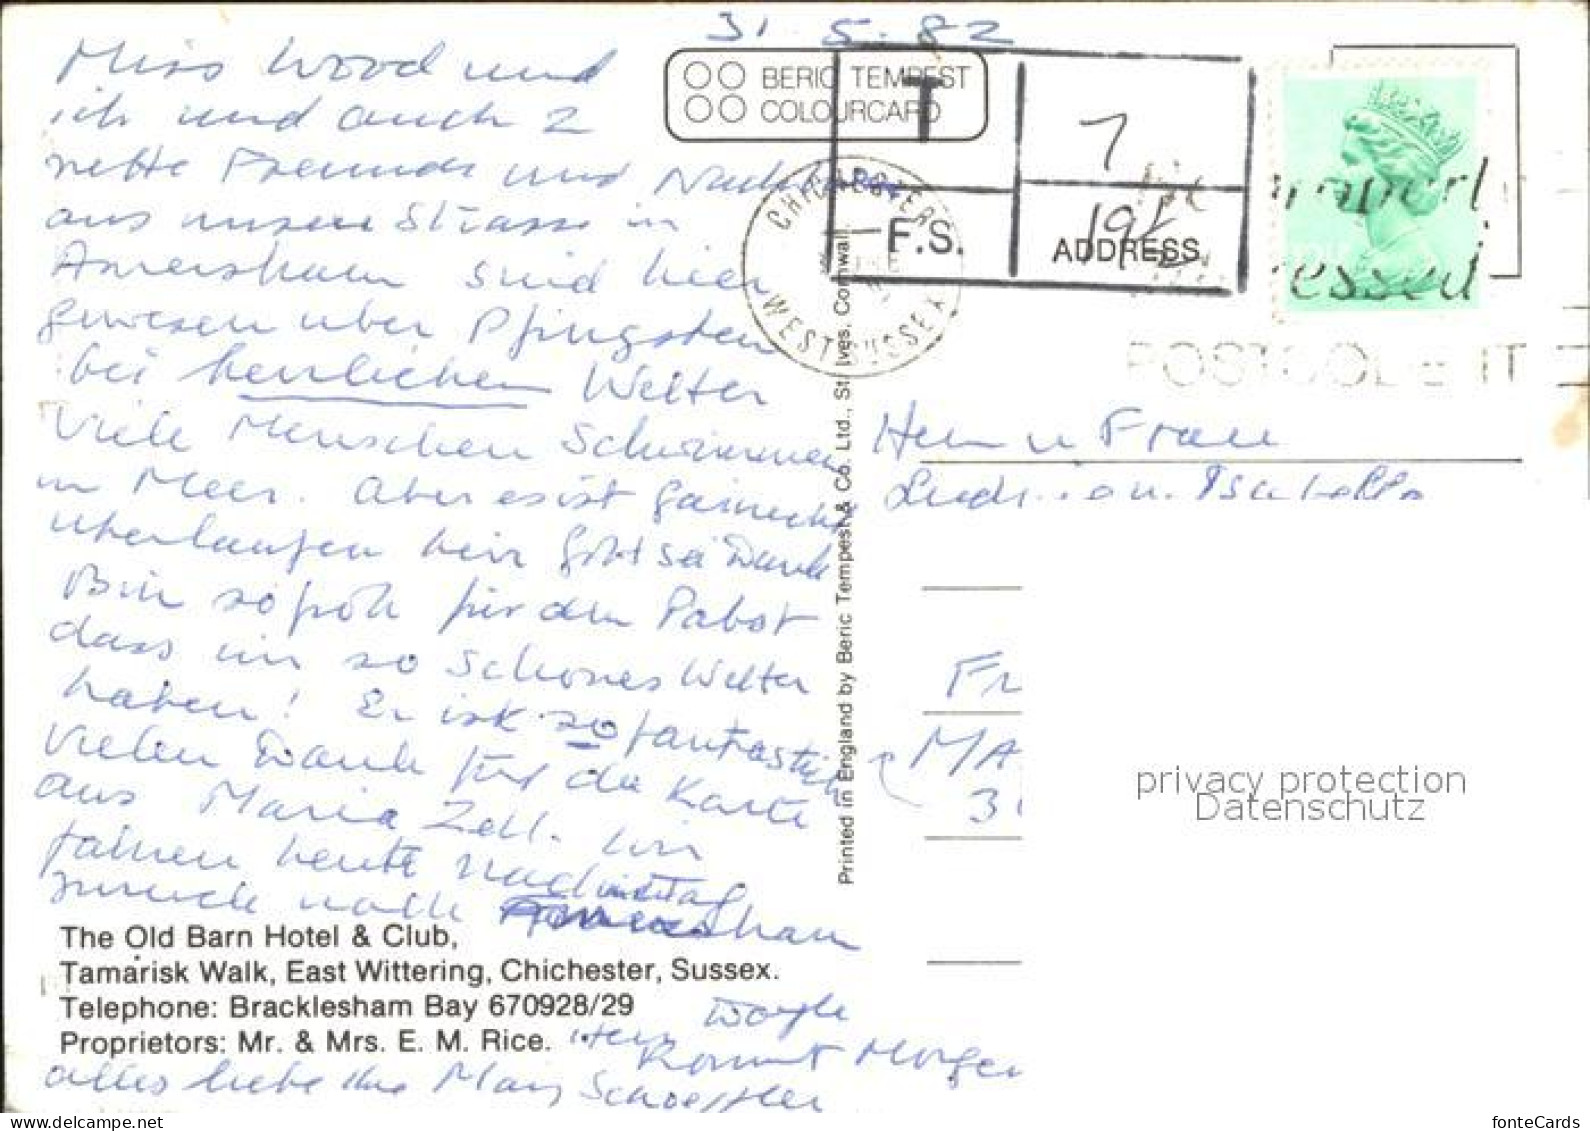 31. 5. 82
Miss Wood und
ich und auch 2
nette Freunde und Nachbarn
aus unsere Strasse in
Amersham sind hier
gewesen uber Pfingsten
bei herrlichen Wetter
Viele Menschen Schwimmen
im Meer. Aber es ist garnicht
uberlaufen hier Gott sei Dank
Bin so froh fur den Pabst
dass wir so schones Wetter
haben! Er ist so fantastich
Vielen Dank fur die Karte
aus Maria Zell. Wir
fahren heute Nachmittag
zuruck nach Amersham
The Old Barn Hotel & Club,
Tamarisk Walk, East Wittering, Chichester, Sussex.
Telephone: Bracklesham Bay 670928/29
Proprietors: Mr. & Mrs. E. M. Rice.
Herr Woyle
kommt Morgen
alles liebe Ihre Mary Schoessler
BERIC TEMPEST
COLOURCARD
T
7
F.S.
ADDRESS
CHICHESTER
WEST SUSSEX
POSTCODE IT
Printed in England by Beric Tempest & Co. Ltd., St. Ives, Cornwall.
Herr u Frau
FR
MA
privacy protection
Datenschutz
www.delcampe.net
fonteCards